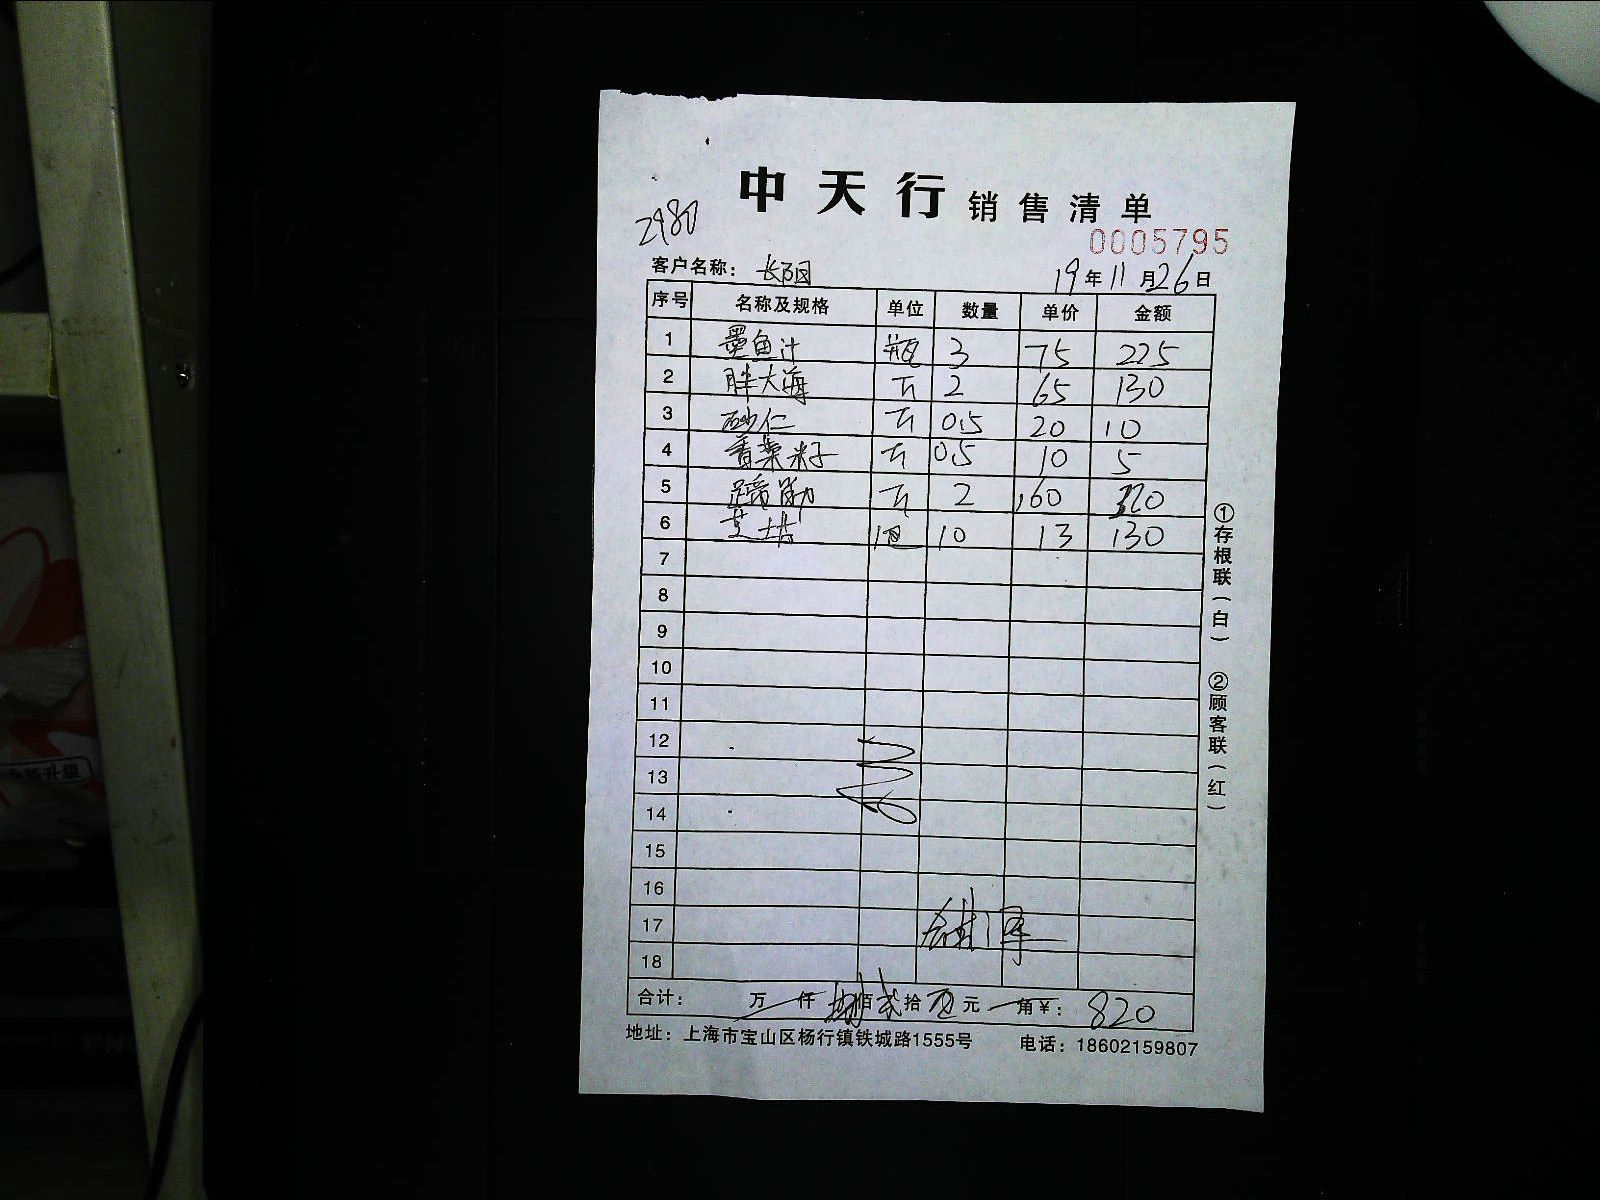 中天行销售清单
2980
0005795
客户名称： 19年11月26日
序号 名称及规格 单位 数量 单价 金额
1 墨鱼汁 瓶 3 75 225
2 胖大海 斤 2 65 130
3 砂仁 斤 0.5 20 10
4 香菜籽 斤 0.5 10 5
5 蹄筋 斤 2 160 320
6 10 13 130
7
8
9
10
11
12
13
14
15
16
17
18
合计： 万 仟 捌佰贰拾 元 角￥： 820
地址：上海市宝山区杨行镇铁城路1555号 电话：18602159807
①存根联（白） ②顾客联（红）
升级